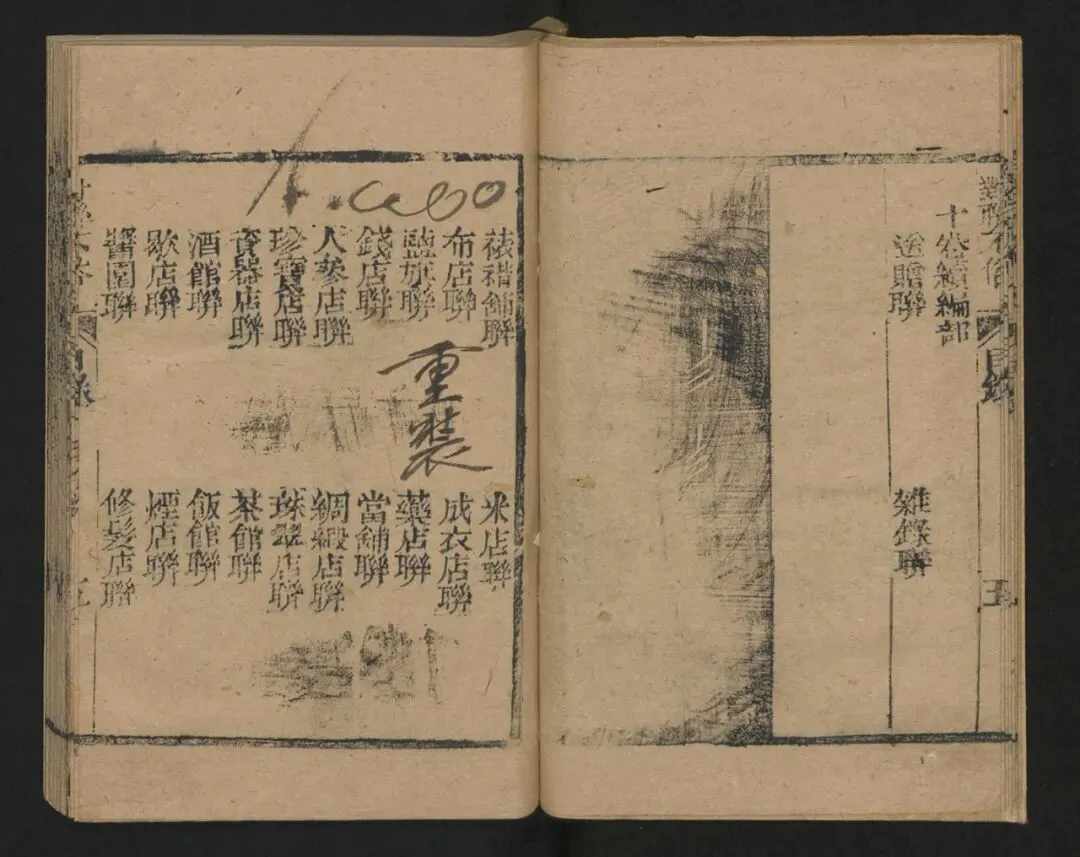 目錄
五
十卷續編部
送贈聯
雜錄聯
裱褙舖聯
米店聯
布店聯
成衣店聯
鹽旗聯
藥店聯
錢店聯
當舖聯
人參店聯
綢緞店聯
珍寶店聯
珠翠店聯
瓷器店聯
茶館聯
酒館聯
飯館聯
歇店聯
煙店聯
醬園聯
修髮店聯
重裝
目錄